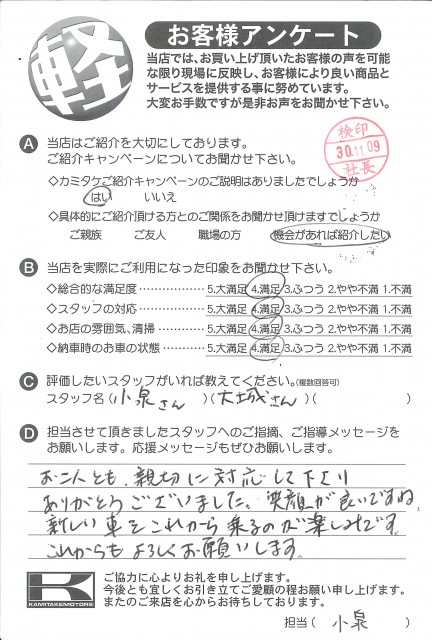 軽
お客様アンケート
当店では、お買い上げ頂いたお客様の声を可能
な限り現場に反映し、お客様により良い商品と
サービスを提供する事に努めています。
大変お手数ですが是非お声をお聞かせ下さい。
検印
30.11.09
社長
A 当店はご紹介を大切にしております。
ご紹介キャンペーンについてお聞かせ下さい。
◇カミタケご紹介キャンペーンのご説明はありましたでしょうか
はい いいえ
◇具体的にご紹介頂ける方とのご関係をお聞かせ頂けますでしょうか
ご親族 ご友人 職場の方 機会があれば紹介したい
B 当店を実際にご利用になった印象をお聞かせ下さい。
◇総合的な満足度 ………… 5.大満足 4.満足 3.ふつう 2.やや不満 1.不満
◇スタッフの対応 ………… 5.大満足 4.満足 3.ふつう 2.やや不満 1.不満
◇お店の雰囲気、清掃 ……… 5.大満足 4.満足 3.ふつう 2.やや不満 1.不満
◇納車時のお車の状態 ……… 5.大満足 4.満足 3.ふつう 2.やや不満 1.不満
C 評価したいスタッフがいれば教えてください。(複数回答可)
スタッフ名(小泉さん)(大城さん)( )
D 担当させて頂きましたスタッフへのご指摘、ご指導メッセージを
お願いします。応援メッセージもぜひお願いします。
お二人とも、親切に対応して下さり
ありがとうございました。笑顔が良いですね
新しい車をこれから乗るのが楽しみです。
これからもよろしくお願いします。
K
KAMITAKEMOTORS
ご協力に心よりお礼を申し上げます。
今後とも宜しくお引き立てご愛顧の程お願い申し上げます。
またのご来店を心からお待ちしております。
担当( 小泉 )